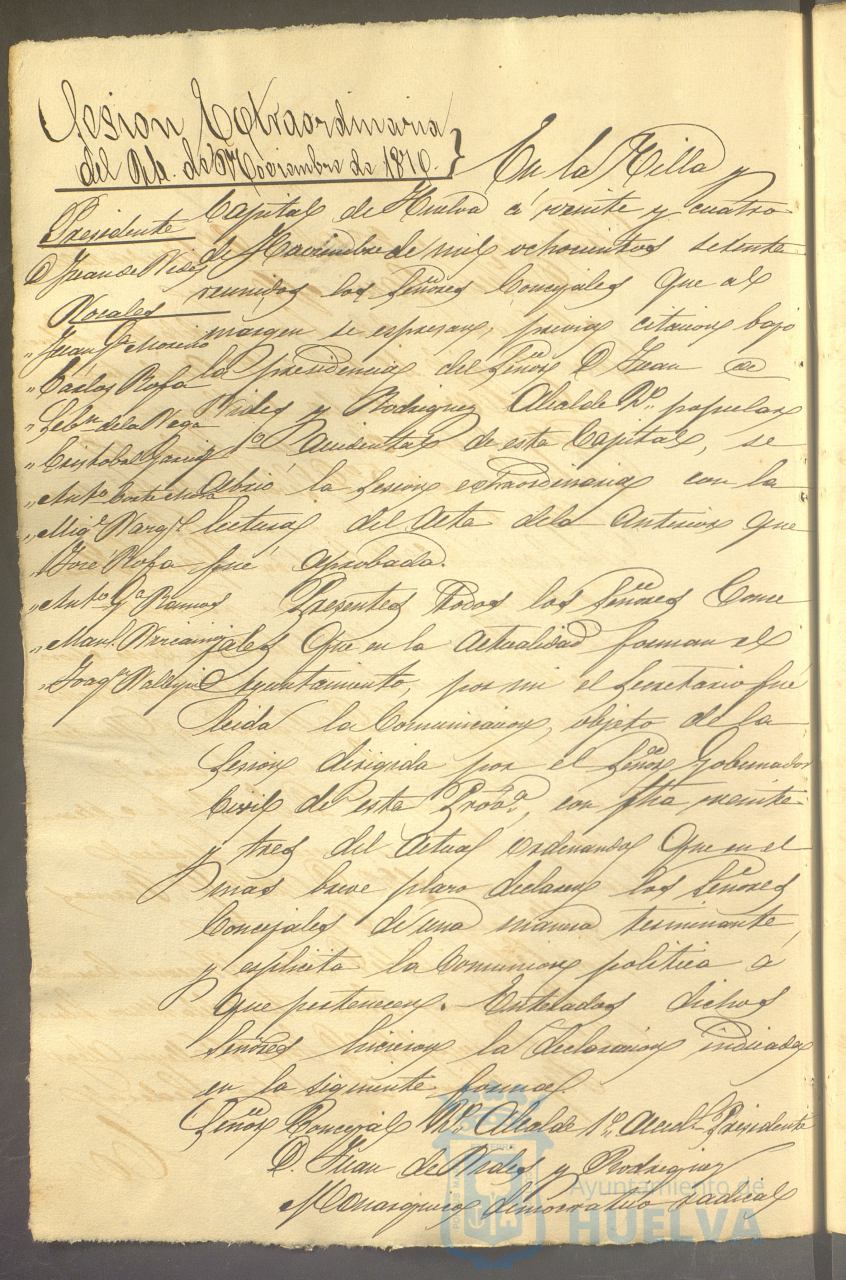 Sesion Extraordinaria
del 24. de Noviembre de 1870.
En la Villa y
Capital de Huelva á veinte y cuatro
de Noviembre de mil ochocientos setenta
reunidos los Señores Concejales que al
margen se espresan, previa citacion bajo
la presidencia del Señor D. Juan de
y Rodriguez Alcalde popular
accidental de esta Capital, se
abrió la Sesion extraordinaria con la
lectura del Acta dela anterior que
fué aprobada.
Presentes todos los Señores Conce
jales que en la actualidad forman el
Ayuntamiento, por mi el Secretario fué
leida la Comunicacion, objeto de la
Sesion dirigida por el Señor Gobernador
Civil de esta Prov.a, con fha veinte
y tres del actual ordenando que en el
mas breve plazo declaren los Señores
Concejales de una manera terminante
y esplicita la Comunion politica á
que pertenecen. Enterados dichos
Señores hicieron la declaracion indicada
en la siguiente forma.
Señor Concejal Alcalde 1º Accid.l Presidente
D. Juan de y Rodriguez
Monárquico democratico radical
Presidente
D. Juan de
Vocales
" Juan G.a Moreno
" Cárlos Rofa
" Seb.n de la Vega
" Cristobal Garcia
" Anto.
" Mig.l
" José Rofa
" Anto. G.a Ramos
" Man.l
" Joaq.n
Ayuntamiento de
HUELVA